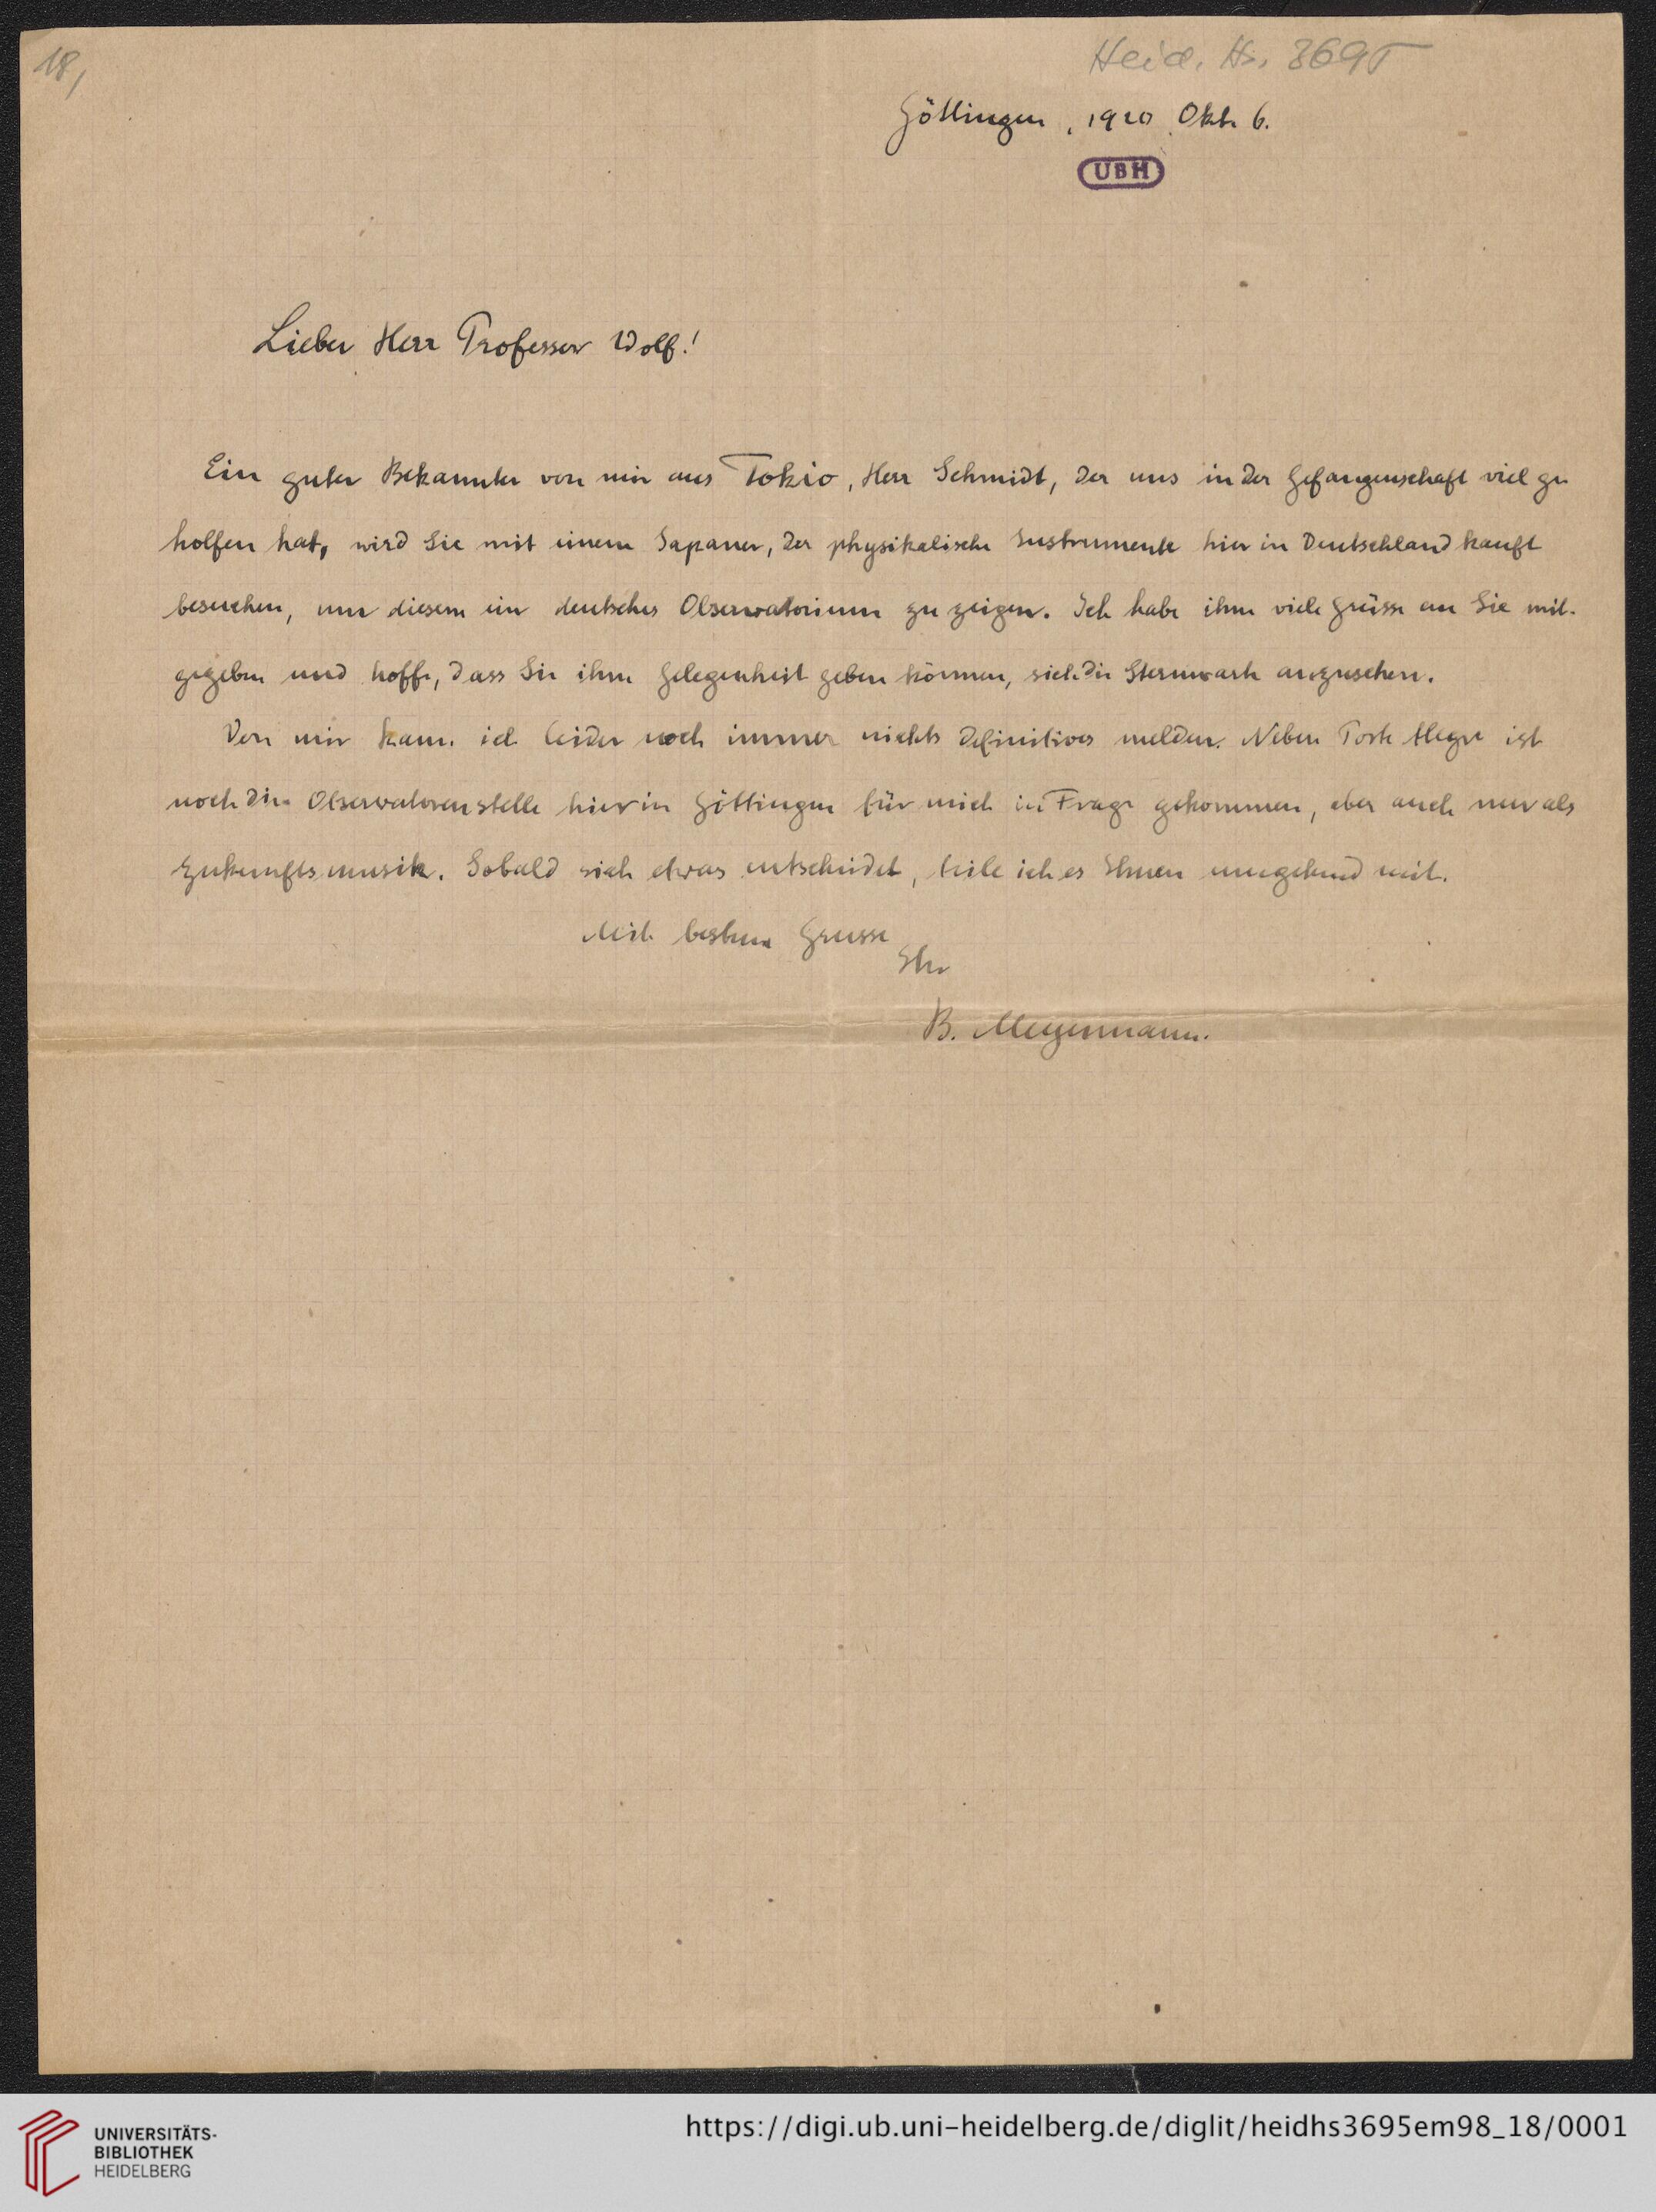 18,
Heid. Hs. 3695
Göttingen, 1920 Okt. 6.
UBH
Lieber Herr Professor Wolf!
Ein guter Bekannter von mir aus Tokio, Herr Schmidt, der uns in der Gefangenschaft viel ge
holfen hat, wird Sie mit einem Japaner, der physikalische Instrumente hier in Deutschland kauft
besuchen, um diesem ein deutsches Observatorium zu zeigen. Ich habe ihm viele Grüsse an Sie mit-
gegeben und hoffe, dass Sie ihm Gelegenheit geben können, sich die Sternwarte anzusehen.
Von mir kann ich leider noch immer nichts Definitives melden. Neben Porte Alegre ist
noch die Observatorenstelle hier in Göttingen für mich in Frage gekommen, aber auch nur als
Zukunftsmusik. Sobald sich etwas entscheidet, teile ich es Ihnen umgehend mit.
Mit bestem Grusse
Ihr
B. Meyermann.
UNIVERSITÄTS-
BIBLIOTHEK
HEIDELBERG
https://digi.ub.uni-heidelberg.de/diglit/heidhs3695em98_18/0001